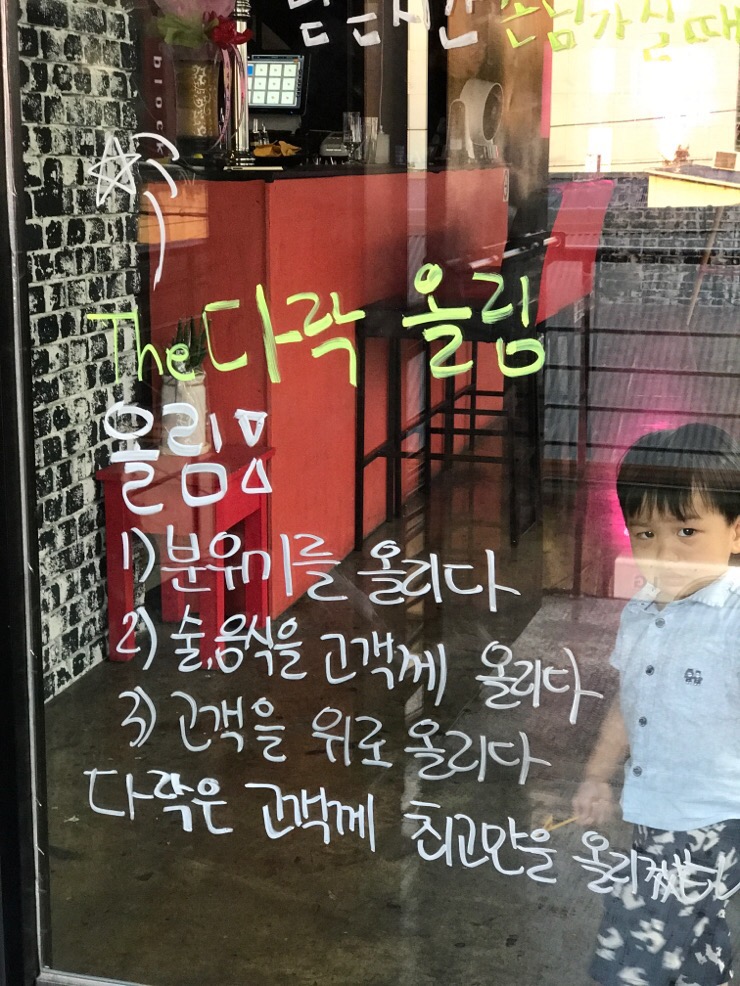 닫는시간 손님가실때
block
The 다락 올림
올림
1) 분위기를 올리다
2) 술,음식을 고객께 올리다
3) 고객을 위로 올리다
다락은 고객께 최고만을 올리겠습니다